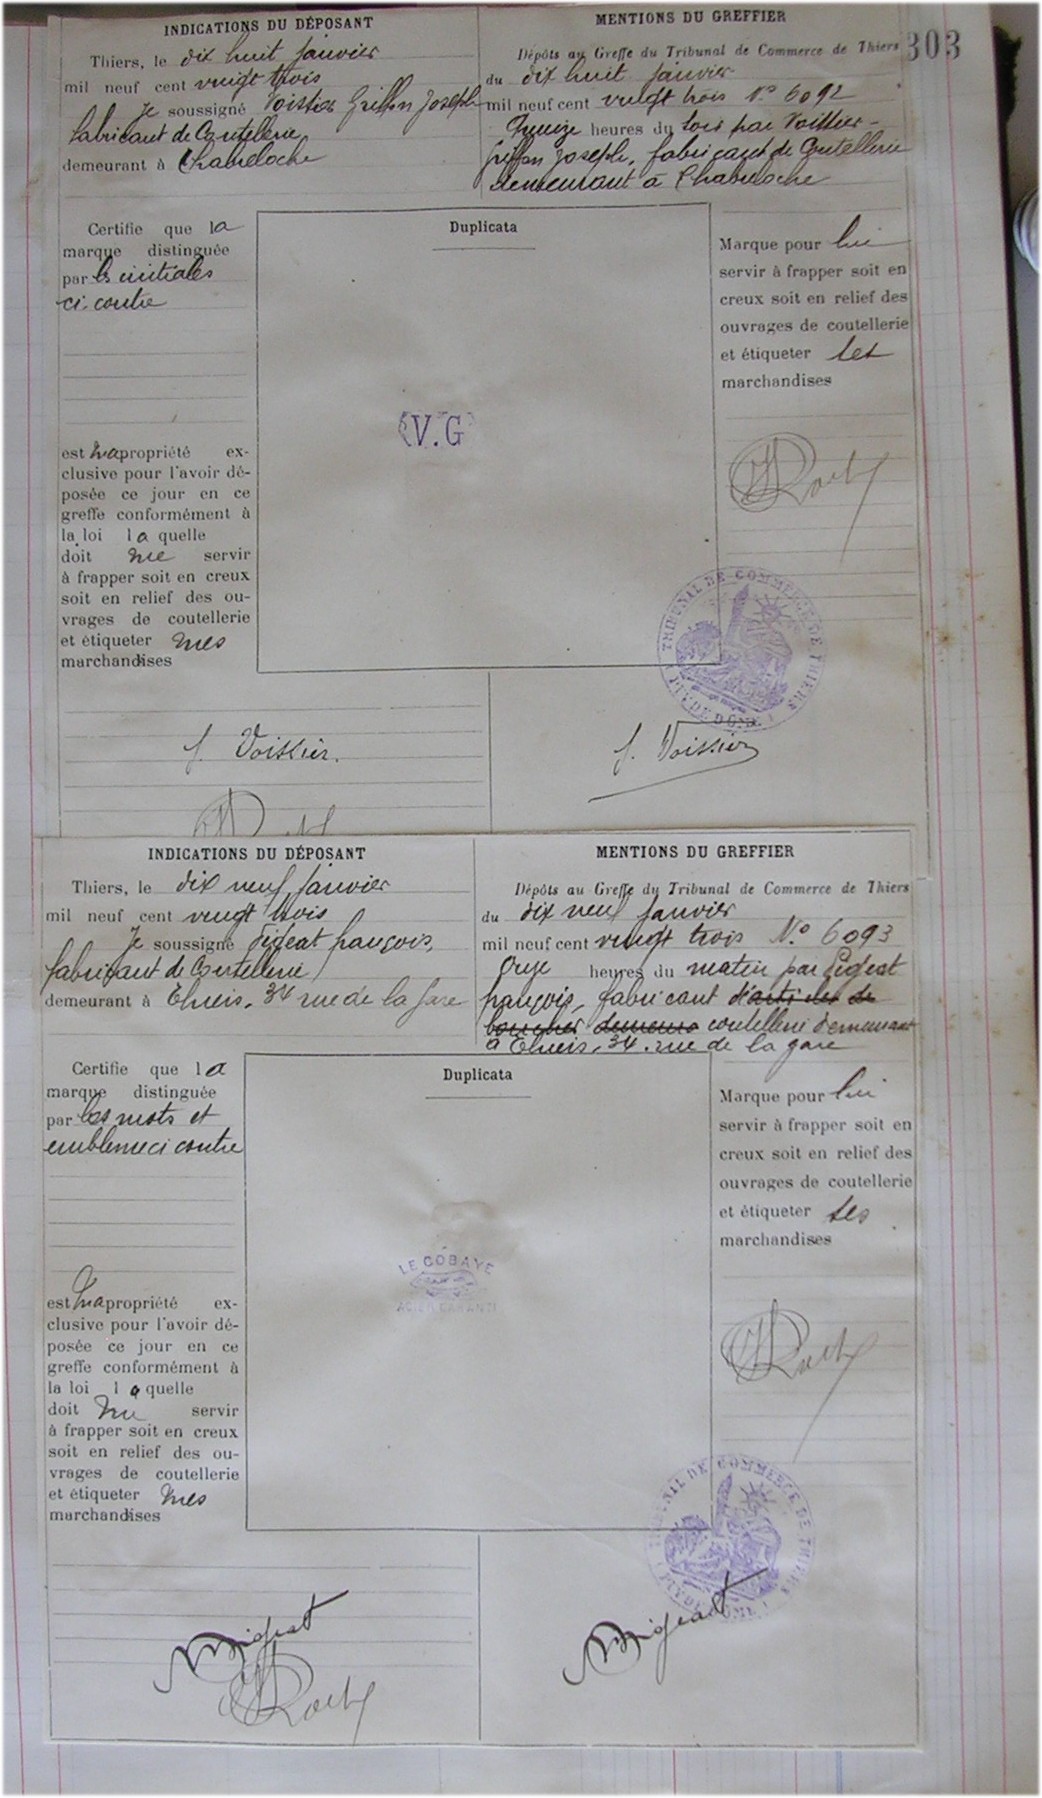 303
INDICATIONS DU DÉPOSANT
Thiers, le dix huit Janvier
mil neuf cent vingt trois
Je soussigné Voissier Griffon Joseph
fabricant de Coutellerie
demeurant à Chabeloche
MENTIONS DU GREFFIER
Dépôts au Greffe du Tribunal de Commerce de Thiers
du dix huit Janvier
mil neuf cent vingt trois N° 6092
heures du soir par Voissier-
Griffon Joseph, fabricant de Coutellerie
demeurant à Chabeloche
Certifie que la
marque distinguée
par les initiales
ci-contre
est ma propriété ex-
clusive pour l'avoir dé-
posée ce jour en ce
greffe conformément à
la loi laquelle
doit me servir
à frapper soit en creux
soit en relief des ou-
vrages de coutellerie
et étiqueter mes
marchandises
Duplicata
V.G
Marque pour lui
servir à frapper soit en
creux soit en relief des
ouvrages de coutellerie
et étiqueter ses
marchandises
TRIBUNAL DE COMMERCE DE THIERS
PUY DE DOME
J. Voissier.
J. Voissier
INDICATIONS DU DÉPOSANT
Thiers, le dix neuf Janvier
mil neuf cent vingt trois
Je soussigné François,
fabricant de Coutellerie
demeurant à Thiers, 34 rue de la Gare
MENTIONS DU GREFFIER
Dépôts au Greffe du Tribunal de Commerce de Thiers
du dix neuf Janvier
mil neuf cent vingt trois N° 6093
Onze heures du matin par
françois, fabricant d'articles de
boucher demeura coutellerie demeurant
à Thiers, 34, rue de la gare
Certifie que la
marque distinguée
par les mots et
emblème ci contre
est ma propriété ex-
clusive pour l'avoir dé-
posée ce jour en ce
greffe conformément à
la loi laquelle
doit me servir
à frapper soit en creux
soit en relief des ou-
vrages de coutellerie
et étiqueter mes
marchandises
Duplicata
LE COBAYE
ACIER GARANTI
Marque pour lui
servir à frapper soit en
creux soit en relief des
ouvrages de coutellerie
et étiqueter ses
marchandises
TRIBUNAL DE COMMERCE DE THIERS
PUY DE DOME